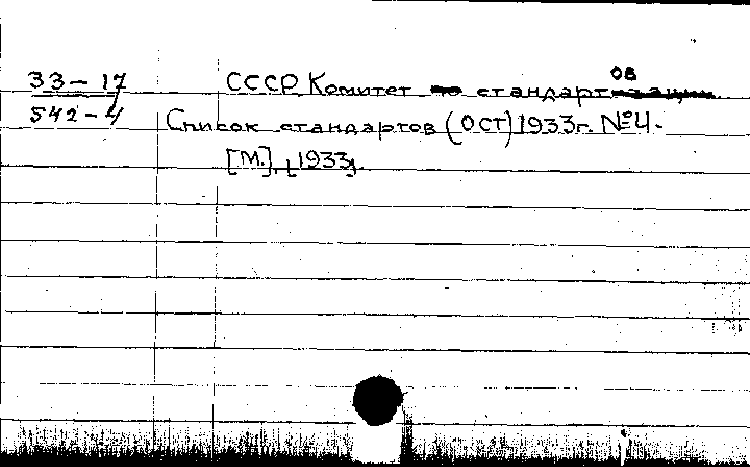 33-17
542-4
СССР Комитет стандартов
Список стандартов (ОСТ) 1933г. №4.
[М.], [1933].